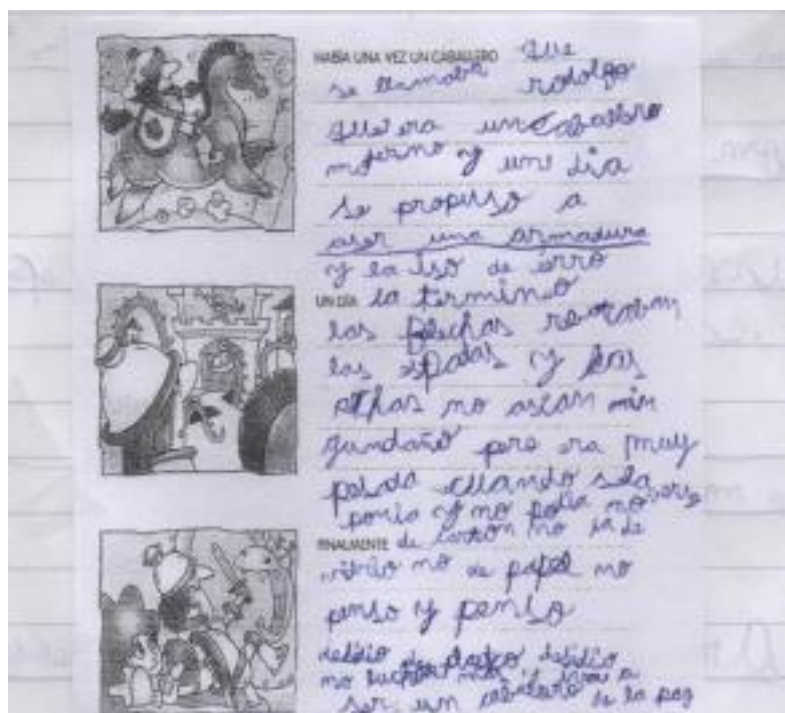 HABÍA UNA VEZ UN CABALLERO que
se llamaba rodolfo
que era un caballero
moderno y une dia
se propuso a
aser una armadura
y la iso de ierro
UN DÍA la termino
las flechas revotaban
las espadas y las
achas no asian nin
gundaño pero era muy
pesada cuando sela
ponia y no podia moverse
FINALMENTE de carton no ja de
vidrio no de papel no
penso y penso
desidio de desidio
no luchar mas y irse a
ser un caballero de la paz